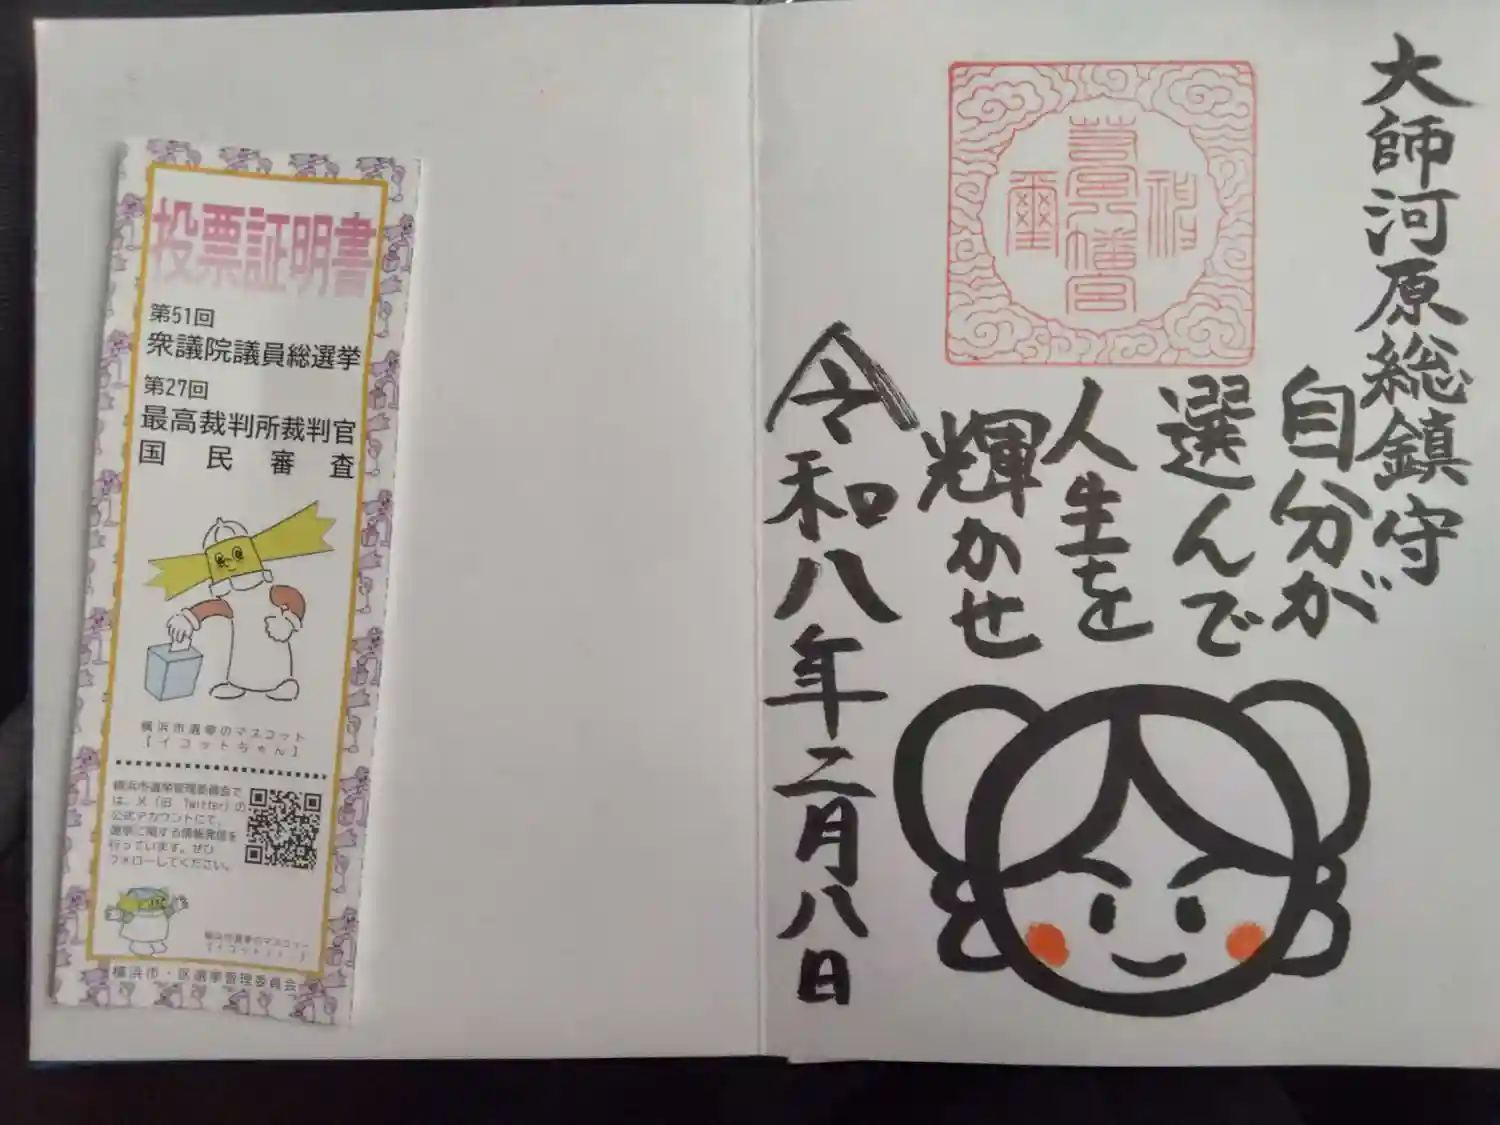 投票証明書
第51回
衆議院議員総選挙
第27回
最高裁判所裁判官
国民審査
横浜市選挙のマスコット
【イコットちゃん】
横浜市選挙管理委員会で
は、X（旧 Twitter）の
公式アカウントにて、
選挙に関する情報発信を
行っています。ぜひ
フォローしてください。
横浜市選挙のマスコット
横浜市・区選挙管理委員会
大師河原総鎮守
自分が
選んで
人生を
輝かせ
令和八年二月八日